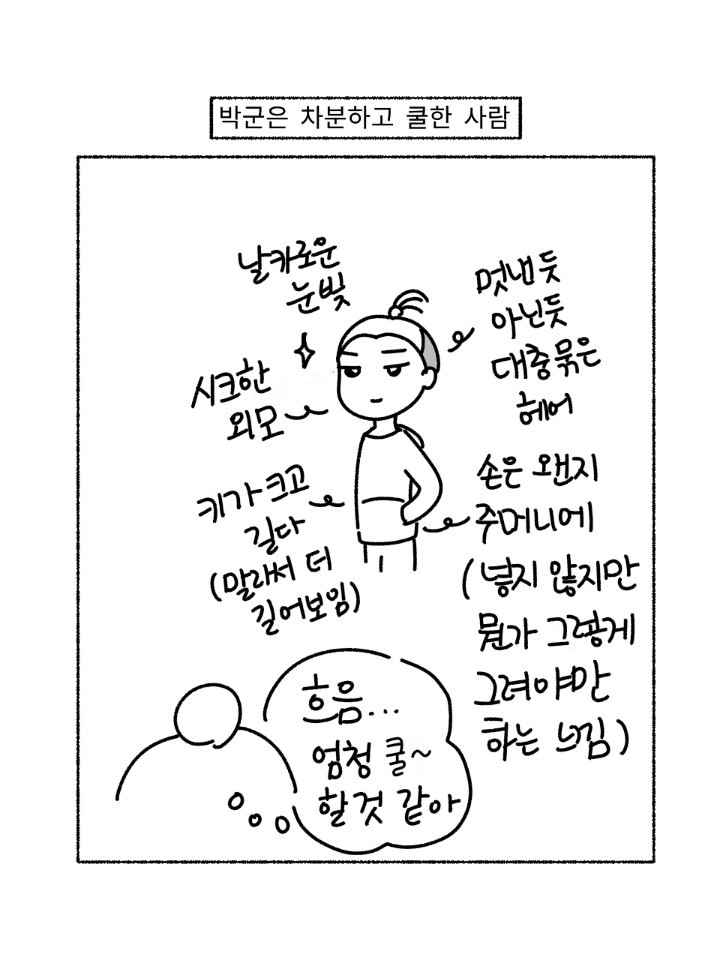 박군은 차분하고 쿨한 사람
날카로운
눈빛
멋낸듯
아닌듯
대충묶은
헤어
시크한
외모
키가크고
길다
(말라서 더
길어보임)
손은 왠지
주머니에
(넣지 않지만
뭔가 그렇게
그려야만
하는 느낌)
흐음...
엄청 쿨~
할것 같아